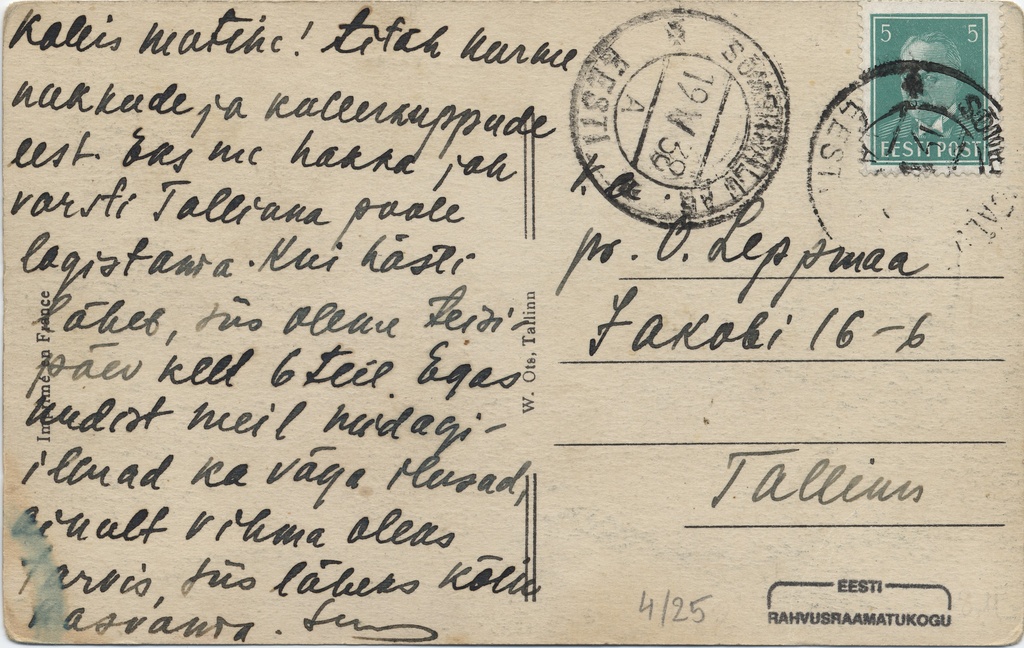 Kallis mutike! Aitäh nurme
nukkude ja kullerkuppude
eest. Eks me hakka jah
varsti Tallinna poole
logistama. Kui hästi
läheb, siis oleme Teisi-
päev kell 6 teil Egas
uudist meil midagi-
ilmad ka väga ilusad,
ainult vihma oleks
tarvis, siis läheks kõik
kasvama.
Imprimé en France
W. Ots, Tallinn
SÕMERPALU AG.
EESTI
A
19 V 38
5 5
EESTI POST
EESTI
A
pr. O. Leppmaa
Jakobi 16-6
Tallinn
4/25
EESTI
RAHVUSRAAMATUKOGU